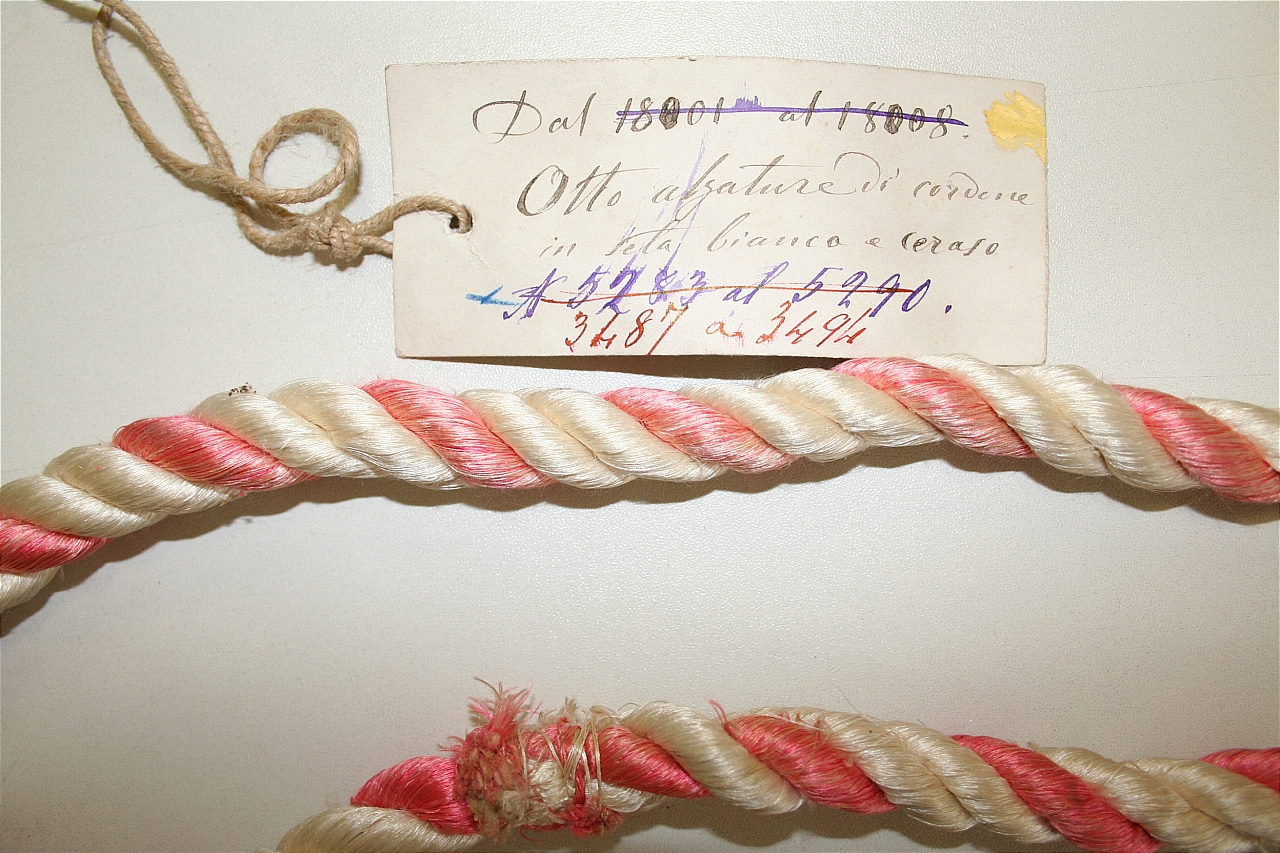 Dal 18001 al 18008.
Otto alzature di cordone
in seta bianco e ceraso
N 5283 al 5290.
3487 a 3494